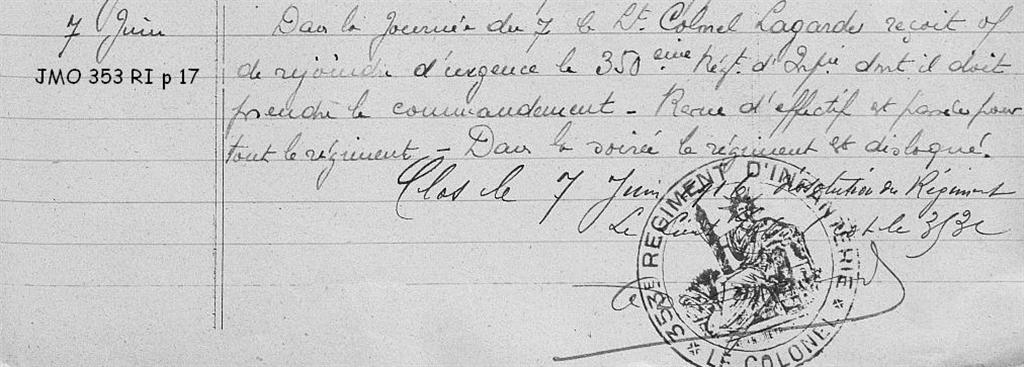 7 Juin
JMO 353 RI p 17
Dans la journée du 7 le Lt. Colonel Lagarde reçoit
de rejoindre d'urgence le 350ème Régt. d'Infie dont il doit
prendre le commandement - Revue d'effectif est passée pour
tout le régiment - Dans la soirée le régiment est disloqué.
Clos le 7 Juin 1916 dissolution du Régiment
Le Lieut le 353e
353E REGIMENT D'INFANTERIE
LT COLONEL